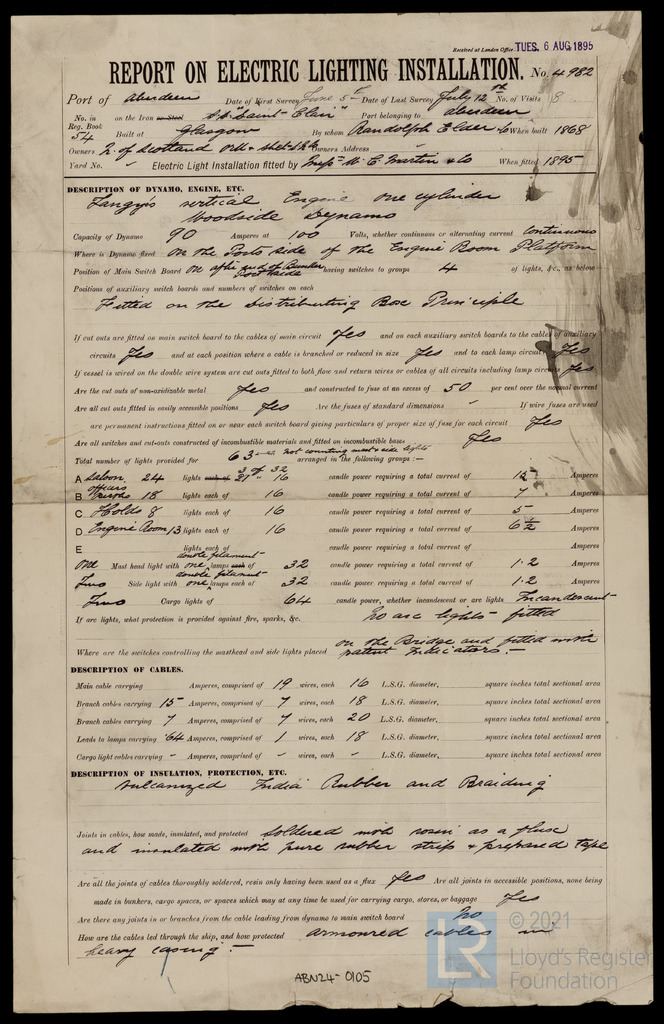 Received at London Office TUES. 6 AUG 1895
REPORT ON ELECTRIC LIGHTING INSTALLATION. No. 4982
Port of Aberdeen Date of First Survey June 5th Date of Last Survey July 12th No. of Visits 8
No. in Reg. Book 54 on the Iron or Steel S.S. "Saint Clair" Port belonging to Aberdeen
Built at Glasgow By whom Randolph Elder & Co When built 1868
Owners N. of Scotland Owners Address
Yard No. Electric Light Installation fitted by Messrs W. C. Martin & Co When fitted 1895
DESCRIPTION OF DYNAMO, ENGINE, ETC.
Tangy's vertical Engine one cylinder
Woodside Dynamo
Capacity of Dynamo 90 Amperes at 100 Volts, whether continuous or alternating current continuous
Where is Dynamo fixed On the Port side of the Engine Room Platform
Position of Main Switch Board On after end of Bunker Port side having switches to groups 4 of lights, &c., as below
Positions of auxiliary switch boards and numbers of switches on each
Fitted on the Distributing Box Principle
If cut outs are fitted on main switch board to the cables of main circuit Yes and on each auxiliary switch boards to the cables of auxiliary
circuits Yes and at each position where a cable is branched or reduced in size Yes and to each lamp circuit Yes
If vessel is wired on the double wire system are cut outs fitted to both flow and return wires or cables of all circuits including lamp circuits Yes
Are the cut outs of non-oxidizable metal Yes and constructed to fuse at an excess of 50 per cent over the normal current
Are all cut outs fitted in easily accessible positions Yes Are the fuses of standard dimensions - If wire fuses are used
are permanent instructions fitted on or near each switch board giving particulars of proper size of fuse for each circuit Yes
Are all switches and cut-outs constructed of incombustible materials and fitted on incombustible bases Yes
Total number of lights provided for 63 not counting mast & side lights arranged in the following groups :—
A Saloon 24 lights each of 3 of 32 21 " 16 candle power requiring a total current of 15 Amperes
B Officers Berths 18 lights each of 16 candle power requiring a total current of 7 Amperes
C Holds 8 lights each of 16 candle power requiring a total current of 5 Amperes
D Engine Room 13 lights each of 16 candle power requiring a total current of 6½ Amperes
E lights each of candle power requiring a total current of Amperes
One Mast head light with one double filament lamps each of 32 candle power requiring a total current of 1.2 Amperes
Two Side light with one double filament lamps each of 32 candle power requiring a total current of 1.2 Amperes
Two Cargo lights of 64 candle power, whether incandescent or arc lights Incandescent
If arc lights, what protection is provided against fire, sparks, &c. No arc lights fitted
Where are the switches controlling the masthead and side lights placed On the Bridge and fitted with patent Indicators. —
DESCRIPTION OF CABLES.
Main cable carrying Amperes, comprised of 19 wires, each 16 L.S.G. diameter, square inches total sectional area
Branch cables carrying 15 Amperes, comprised of 7 wires, each 18 L.S.G. diameter, square inches total sectional area
Branch cables carrying 7 Amperes, comprised of 7 wires, each 20 L.S.G. diameter, square inches total sectional area
Leads to lamps carrying .64 Amperes, comprised of 1 wires, each 18 L.S.G. diameter, square inches total sectional area
Cargo light cables carrying - Amperes, comprised of - wires, each - L.S.G. diameter, square inches total sectional area
DESCRIPTION OF INSULATION, PROTECTION, ETC.
Vulcanized India Rubber and Braiding
Joints in cables, how made, insulated, and protected Soldered with rosin as a fluxe
and insulated with pure rubber strip & prepared tape
Are all the joints of cables thoroughly soldered, resin only having been used as a flux Yes Are all joints in accessible positions, none being
made in bunkers, cargo spaces, or spaces which may at any time be used for carrying cargo, stores, or baggage Yes
Are there any joints in or branches from the cable leading from dynamo to main switch board No
How are the cables led through the ship, and how protected Armoured cables in
heavy casing —
ABN24-0105
LR © 2021
Lloyd's Register
Foundation